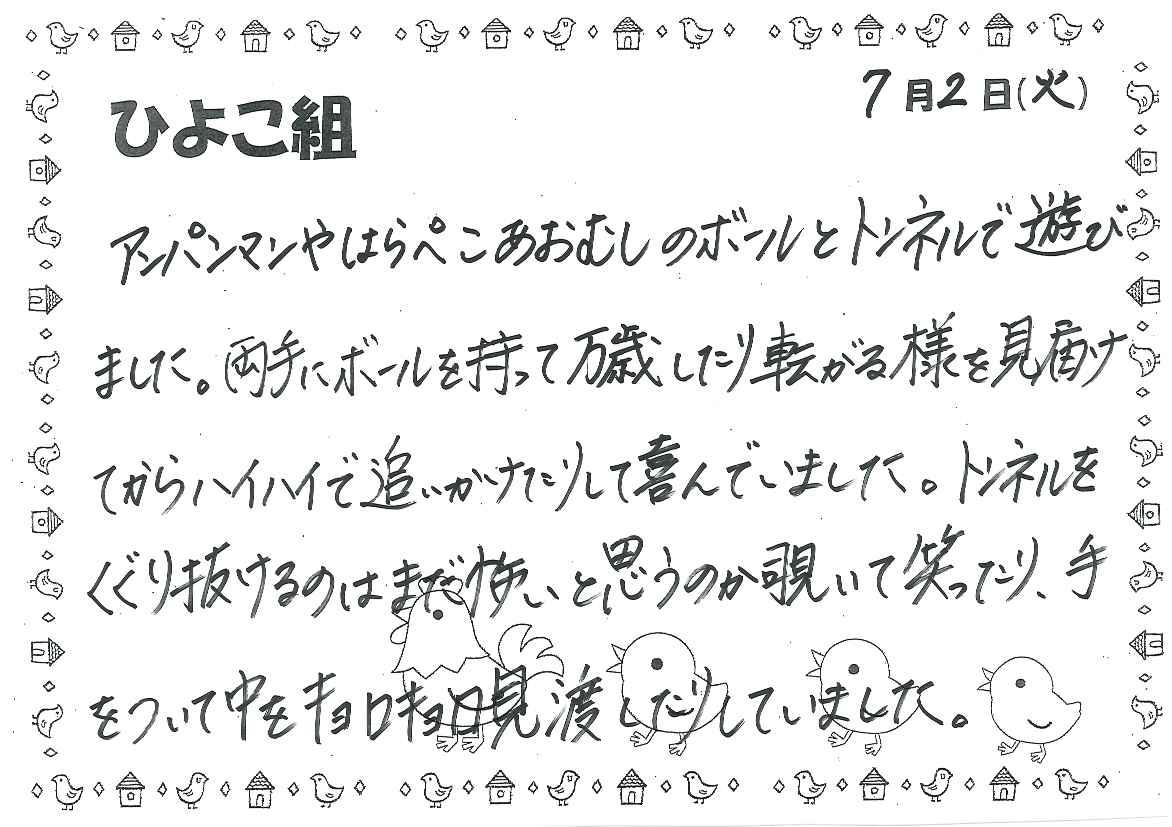 ひよこ組
7月2日(火)
アンパンマンやはらぺこあおむしのボールとトンネルで遊び
ました。両手にボールを持って万歳したり転がる様を見届け
てからハイハイで追いかけたりして喜んでいました。トンネルを
くぐり抜けるのはまだ怖いと思うのか覗いて笑ったり、手
をついて中をキョロキョロ見渡したりしていました。